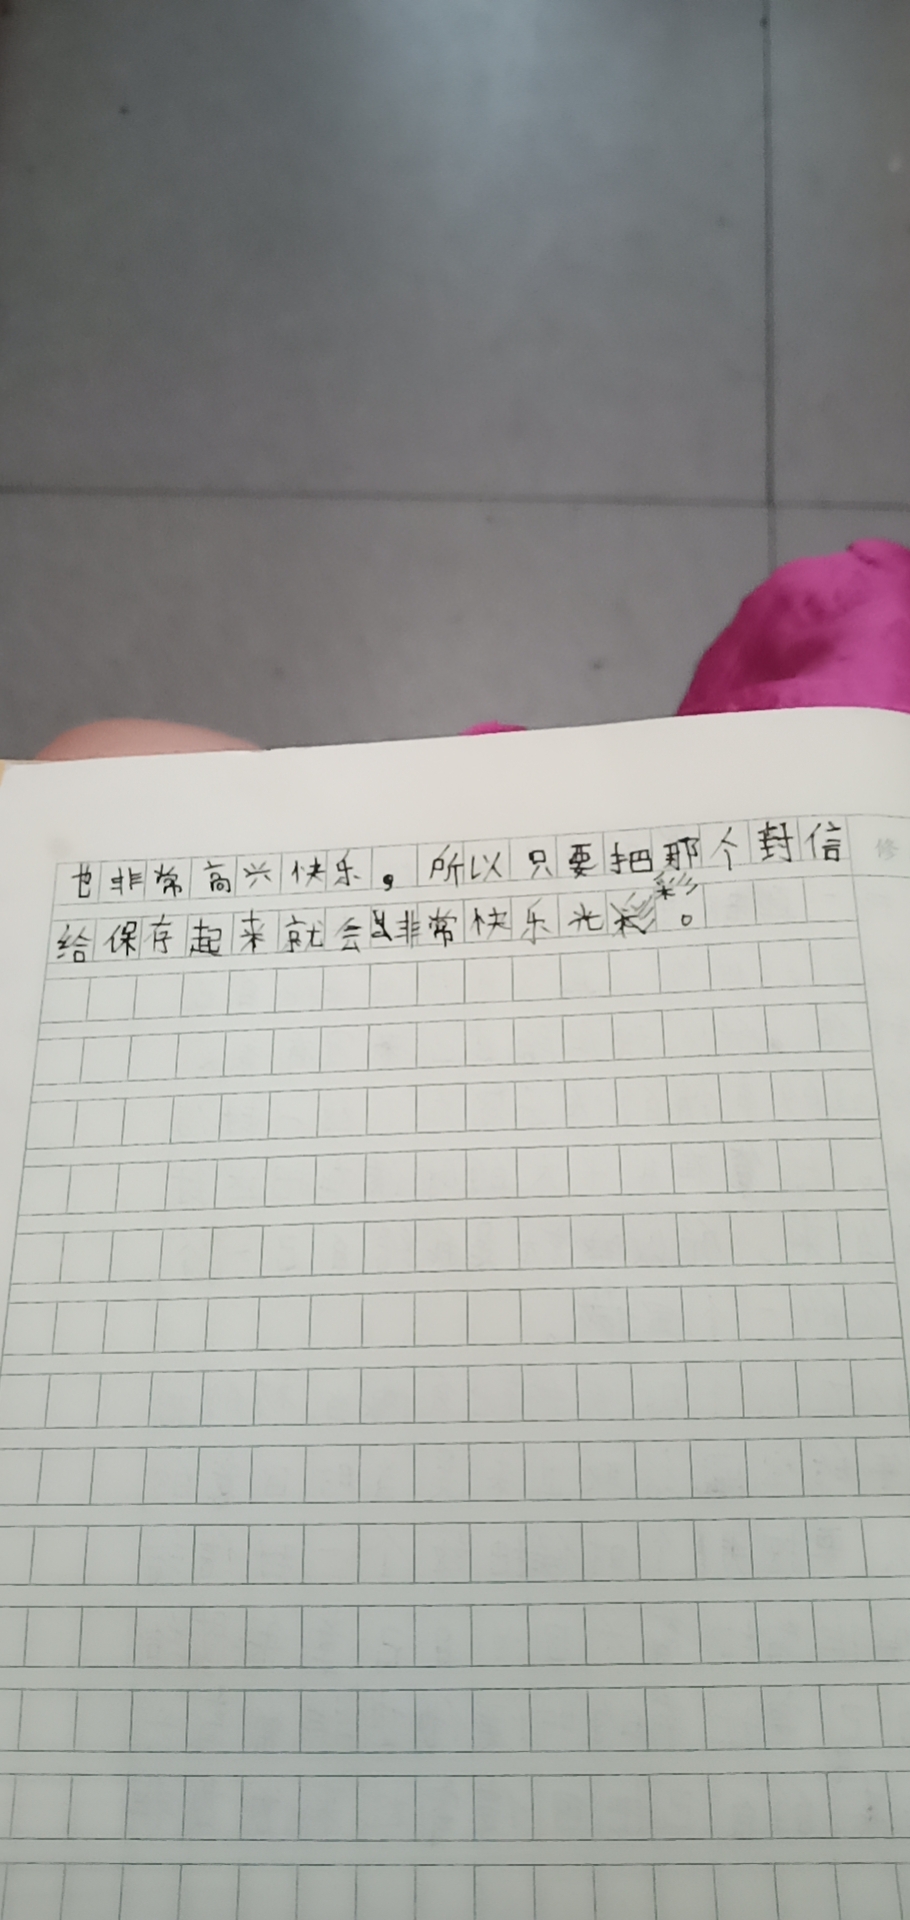 也非常高兴快乐，所以只要把那个封信
修
给保存起来就会非常快乐光彩。